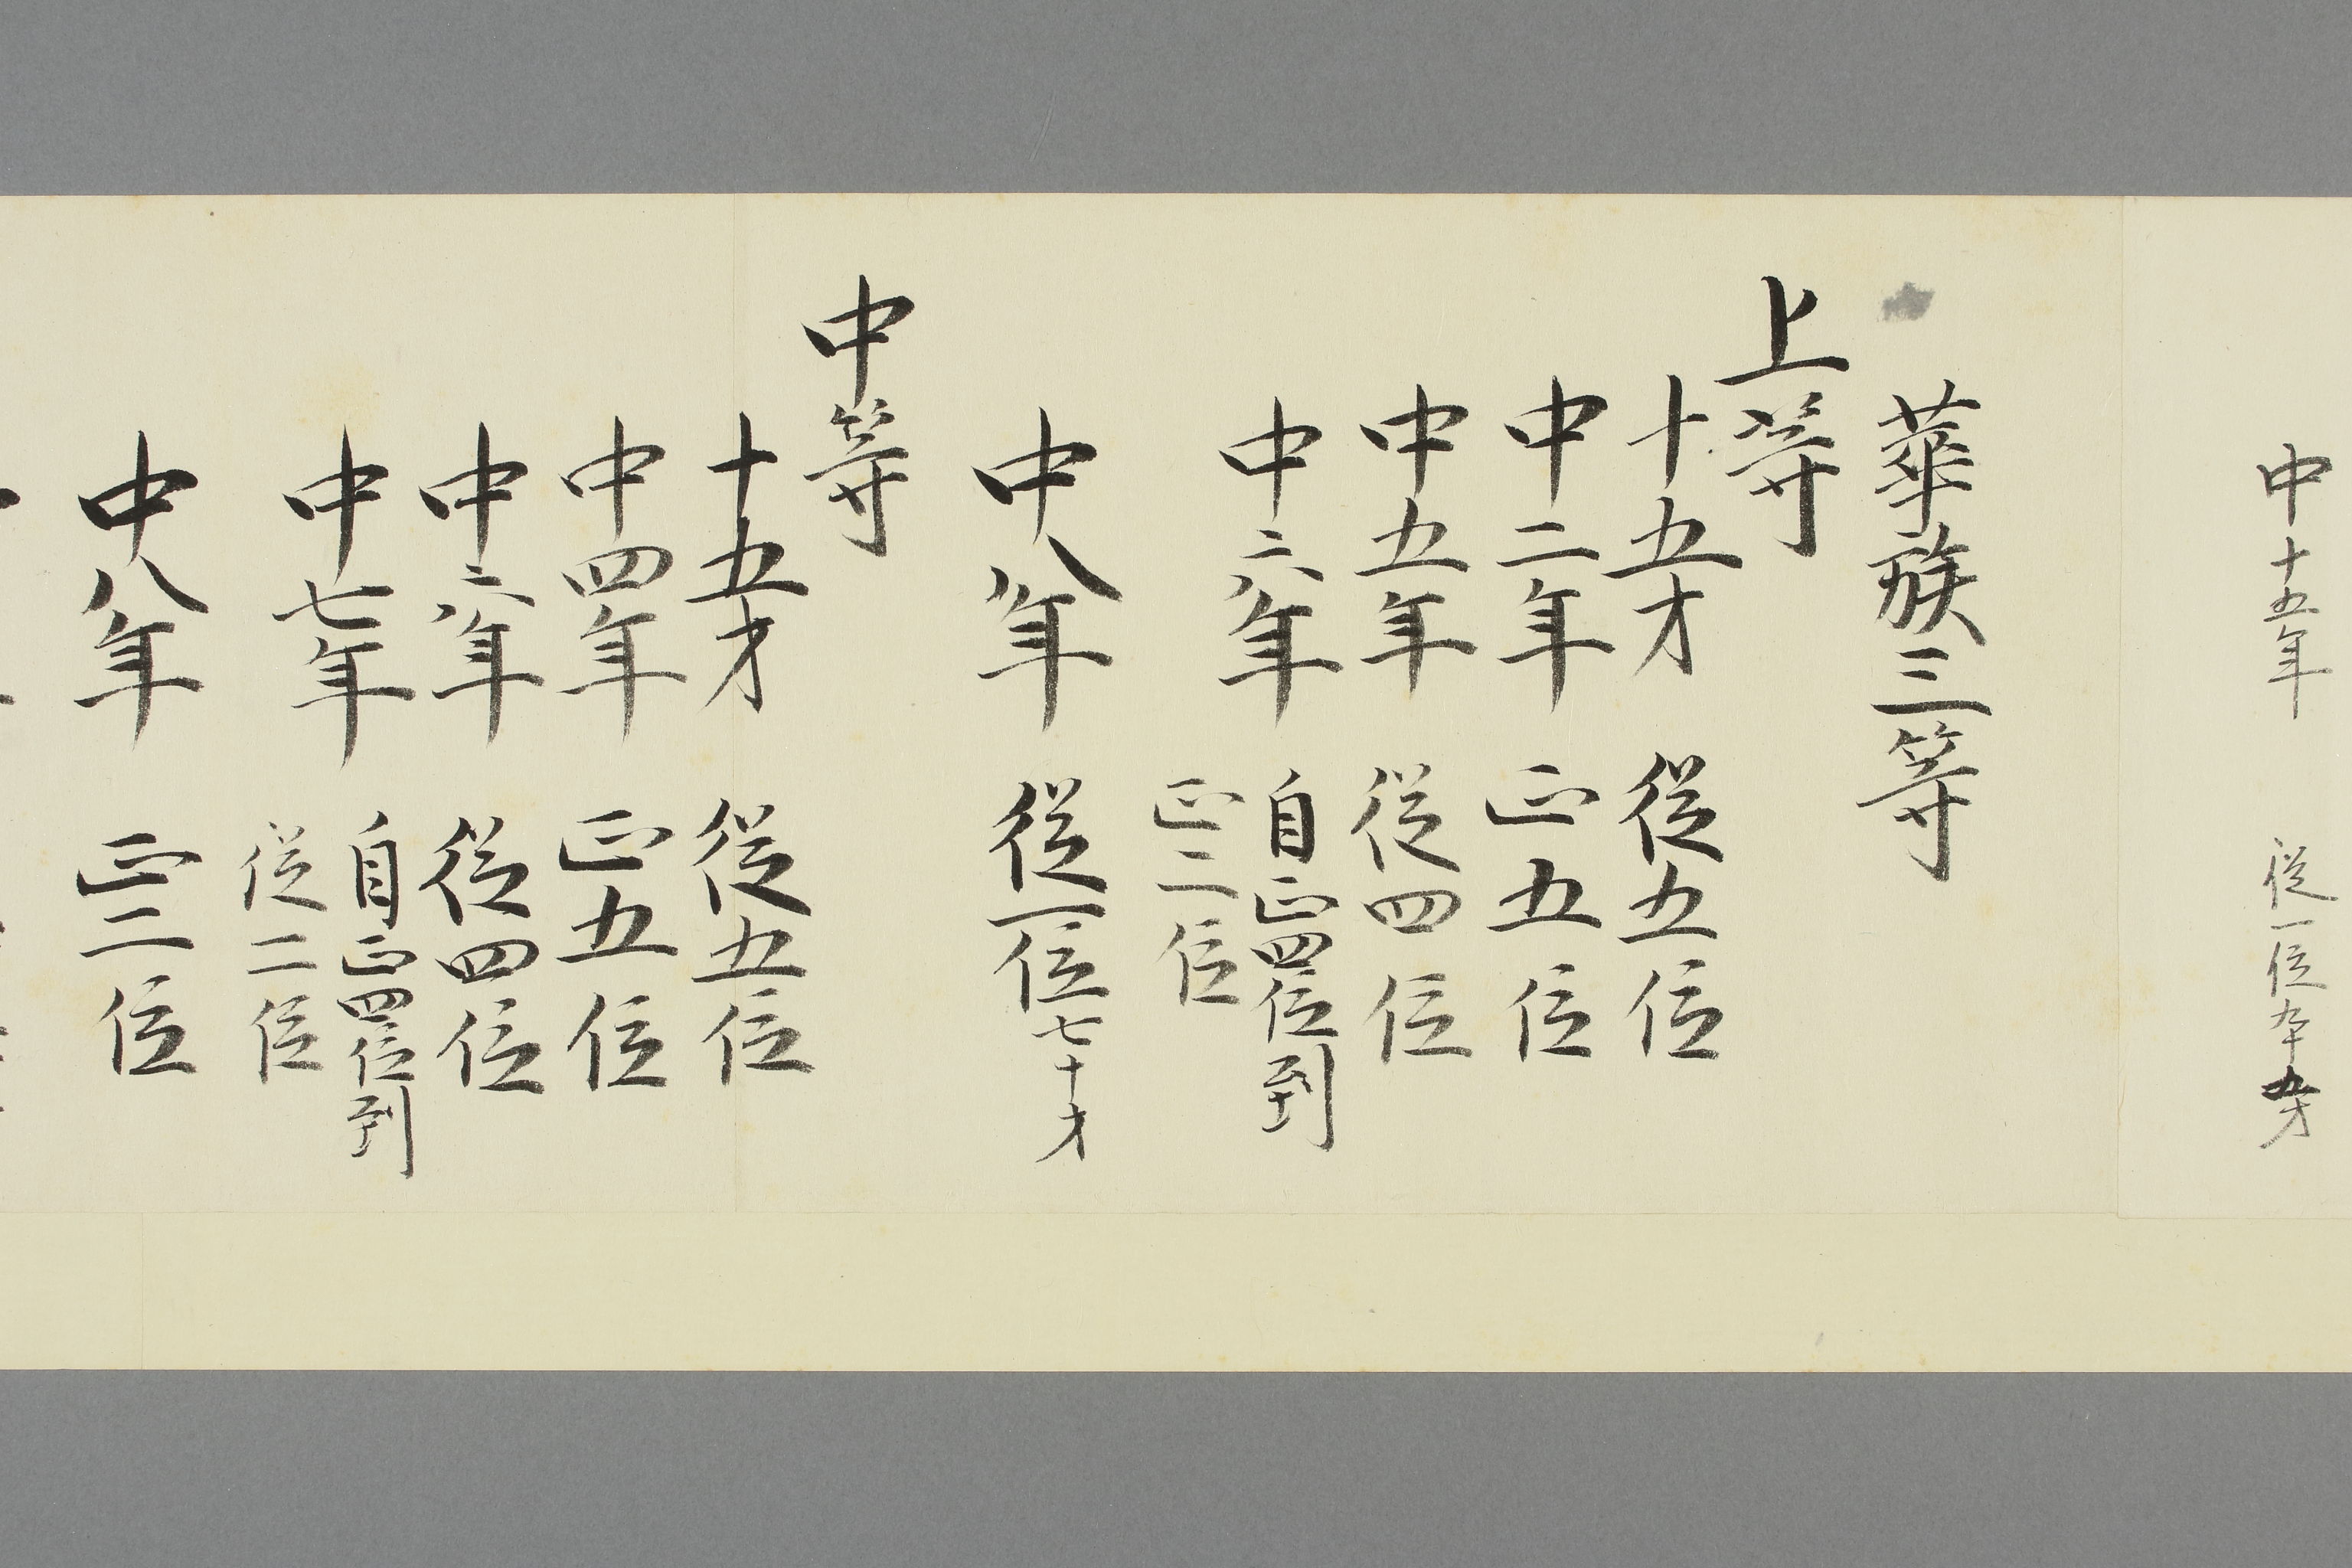 中十五年 従一位九十九才
華族三等
上等
十五才 従五位
中二年 正五位
中五年 従四位
中六年 自正四位到
正二位
中八年 従一位七十才
中等
十五才 従五位
中四年 正五位
中六年 従四位
中七年 自正四位到
従二位
中八年 正二位